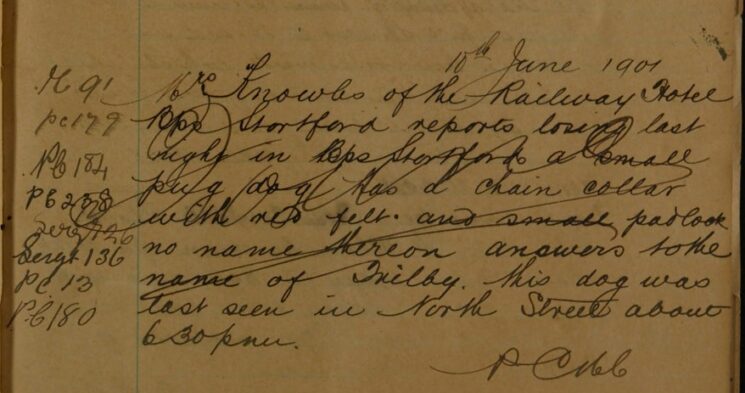 10th June 1901
M 91
Mrs Knowles of the Railway Hotel
pc 179
Bps Stortford reports losing last
PC 184
night in Bps Stortford a small
PC 238
pug dog has a chain collar
with red felt. and small padlock
Sergt 136
no name thereon answers to the
PC 13
name of Trilby. this dog was
PC 180
last seen in North Street about
6 30 pm.